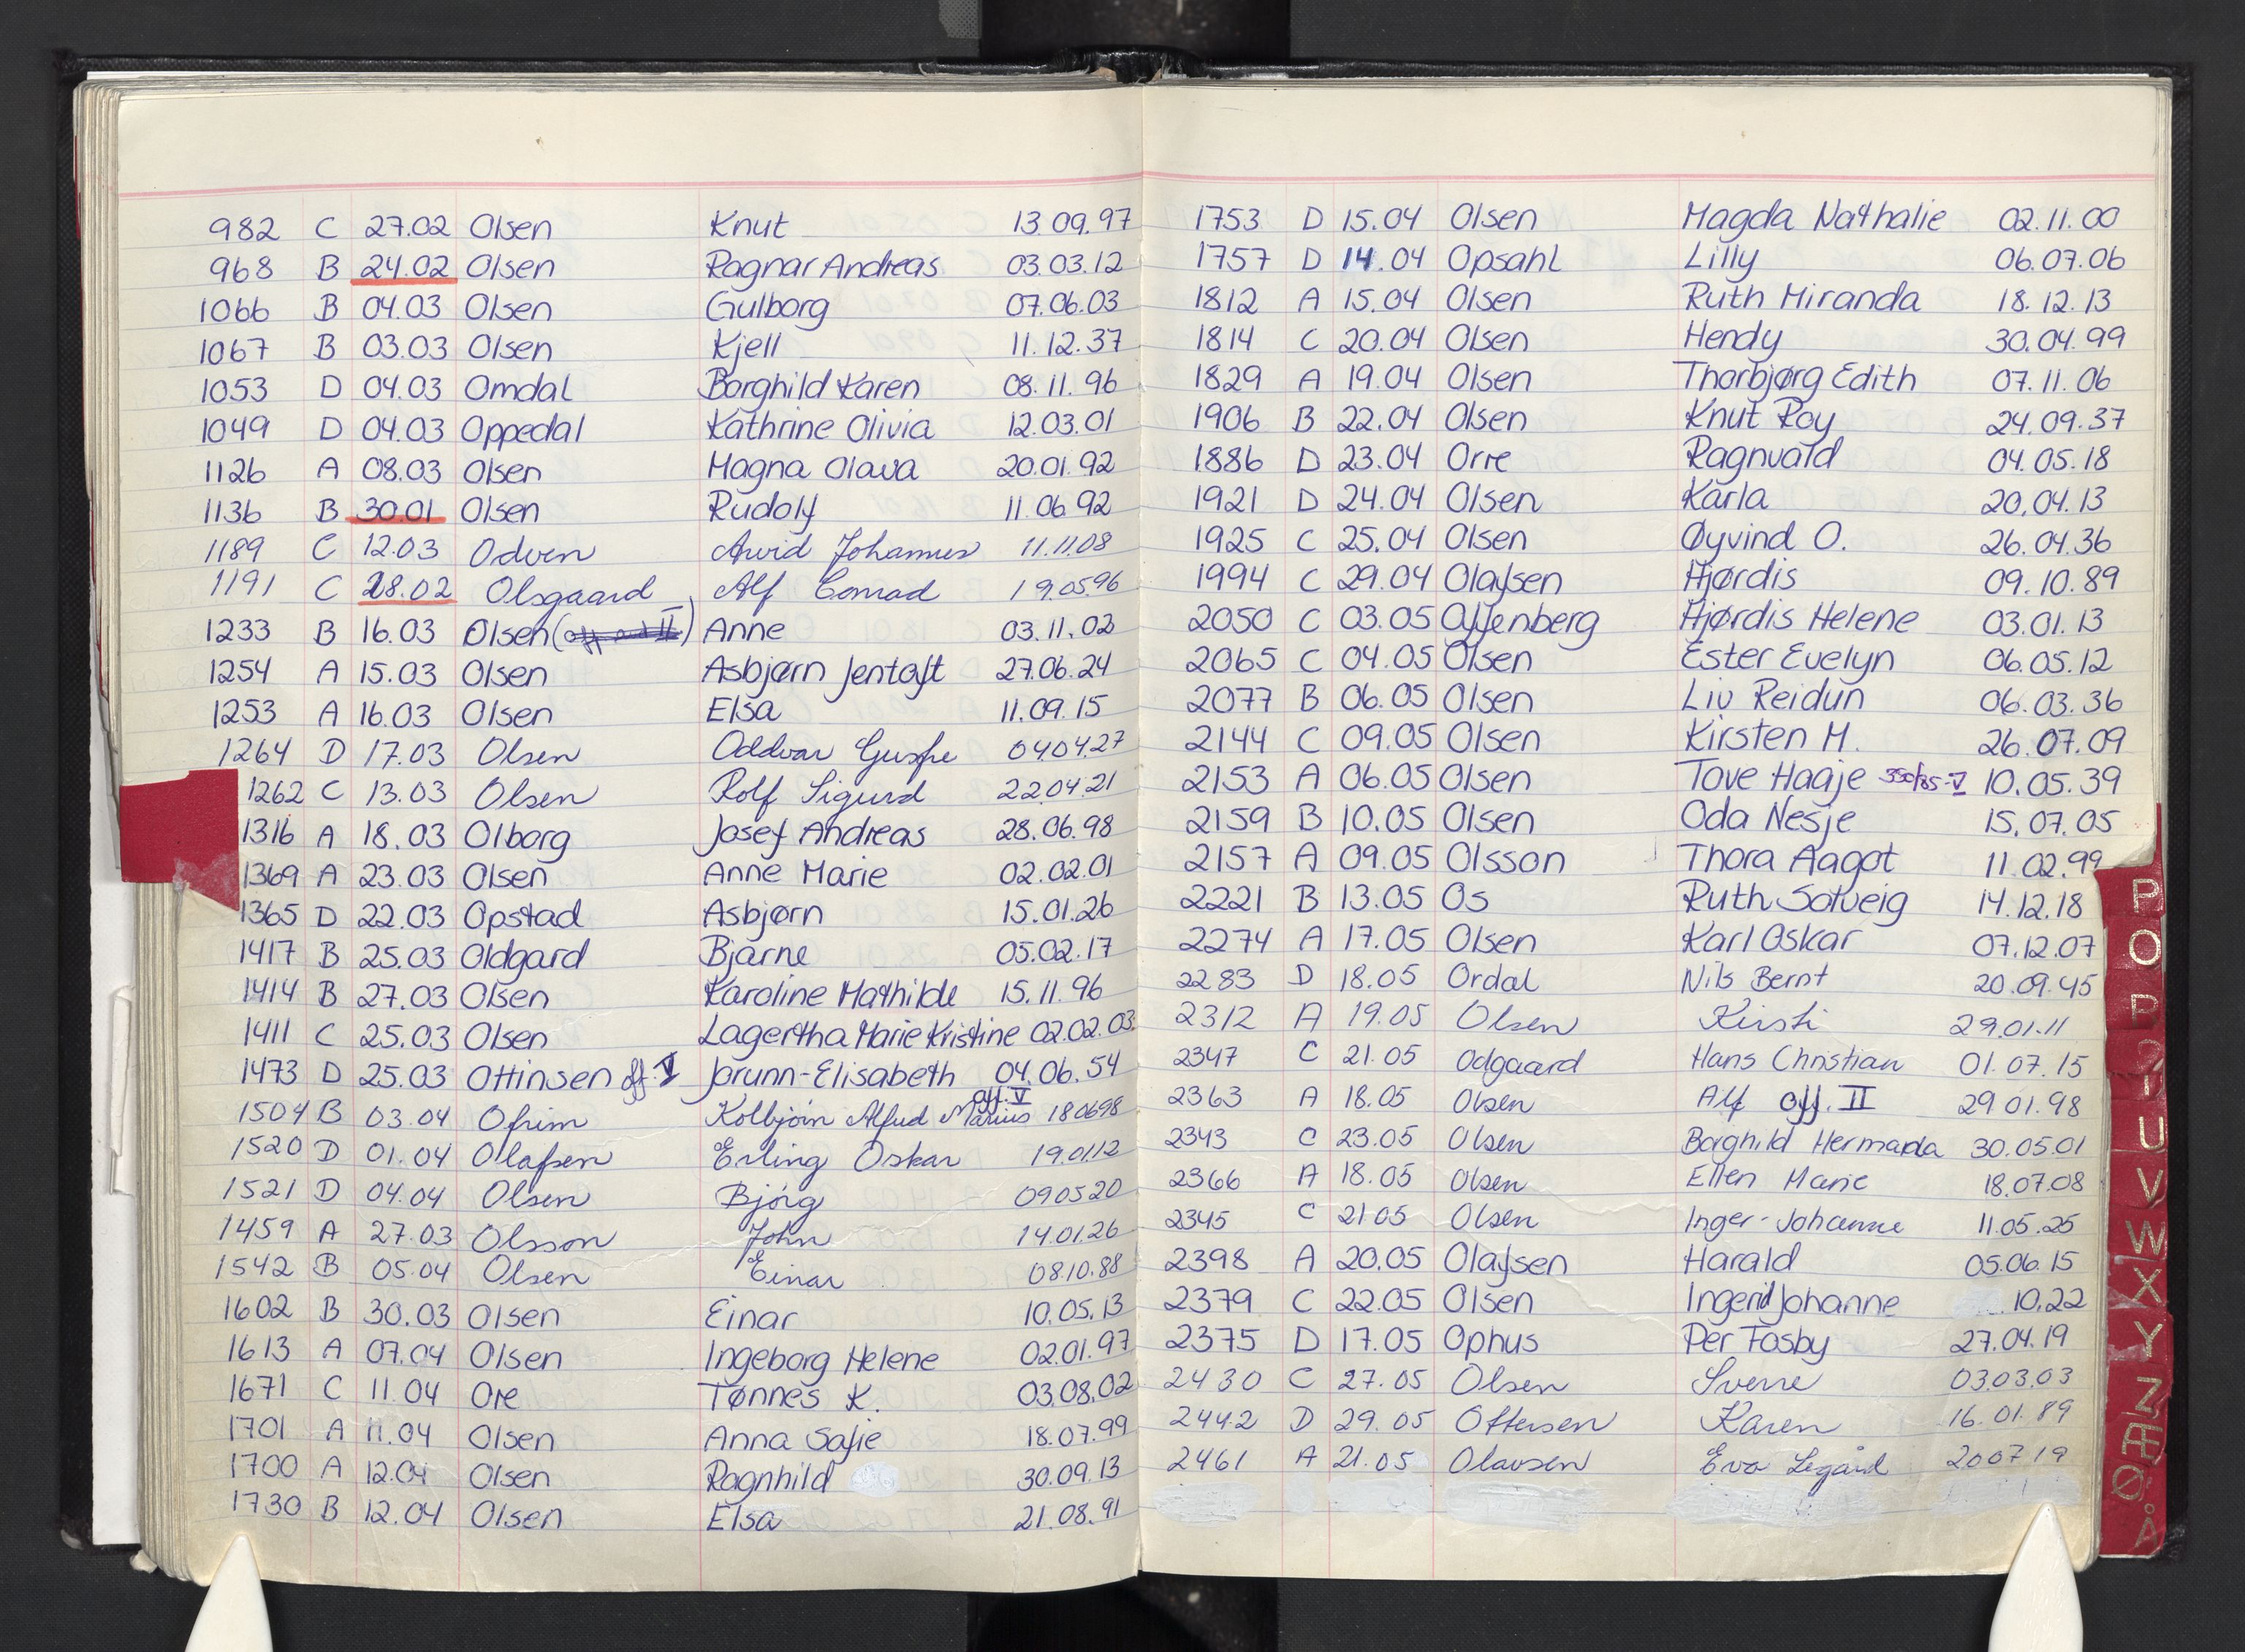 982 C 27.02 Olsen Knut 13.09.97
968 B 24.02 Olsen Ragnar Andreas 03.03.12
1066 B 04.03 Olsen Gulborg 07.06.03
1067 B 03.03 Olsen Kjell 11.12.37
1053 D 04.03 Omdal Borghild Karen 08.11.96
1049 D 04.03 Oppedal Kathrine Olivia 12.03.01
1126 A 08.03 Olsen Magna Olava 20.01.92
1136 B 30.01 Olsen Rudolf 11.06.92
1189 C 12.03 Odven Arvid Johannes 11.11.08
1191 C 28.02 Olsgaard Alf Conrad 19.05.96
1233 B 16.03 Olsen ( II) Anne 03.11.02
1254 A 15.03 Olsen Asbjørn Jentoft 27.06.24
1253 A 16.03 Olsen Elsa 11.09.15
1264 D 17.03 Olsen Oddvar 04.04.27
1262 C 13.03 Olsen Rolf Sigurd 22.04.21
1316 A 18.03 Olborg Josef Andreas 28.06.98
1369 A 23.03 Olsen Anne Marie 02.02.01
1365 D 22.03 Opstad Asbjørn 15.01.26
1417 B 25.03 Oldgard Bjarne 05.02.17
1414 B 27.03 Olsen Karoline Mathilde 15.11.96
1411 C 25.03 Olsen Lagertha Marie Kristine 02.02.03
1473 D 25.03 Ottinsen off. V Jorunn-Elisabeth 04.06.54
off. V
1504 B 03.04 Ofrim Kolbjørn Alfred Marius 180698
1520 D 01.04 Olafsen Erling Oskar 19.01.12
1521 D 04.04 Olsen Bjørg 090520
1459 A 27.03 Olsson John 14.01.26
1542 B 05.04 Olsen Einar 08.10.88
1602 B 30.03 Olsen Einar 10.05.13
1613 A 07.04 Olsen Ingeborg Helene 02.01.97
1671 C 11.04 Ore Tønnes K. 03.08.02
1701 A 11.04 Olsen Anna Sofie 18.07.99
1700 A 12.04 Olsen Ragnhild 30.09.13
1730 B 12.04 Olsen Elsa 21.08.91
1753 D 15.04 Olsen Magda Nathalie 02.11.00
1757 D 14.04 Opsahl Lilly 06.07.06
1812 A 15.04 Olsen Ruth Miranda 18.12.13
1814 C 20.04 Olsen Hendy 30.04.99
1829 A 19.04 Olsen Thorbjørg Edith 07.11.06
1906 B 22.04 Olsen Knut Roy 24.09.37
1886 D 23.04 Orre Ragnvald 04.05.18
1921 D 24.04 Olsen Karla 20.04.13
1925 C 25.04 Olsen Øyvind O. 26.04.36
1994 C 29.04 Olafsen Hjørdis 09.10.89
2050 C 03.05 Offenberg Hjørdis Helene 03.01.13
2065 C 04.05 Olsen Ester Evelyn 06.05.12
2077 B 06.05 Olsen Liv Reidun 06.03.36
2144 C 09.05 Olsen Kirsten M. 26.07.09
2153 A 06.05 Olsen Tove Haaje 350/85-V 10.05.39
2159 B 10.05 Olsen Oda Nesje 15.07.05
2157 A 09.05 Olsson Thora Aagot 11.02.99
2221 B 13.05 Os Ruth Solveig 14.12.18
2274 A 17.05 Olsen Karl Oskar 07.12.07
2283 D 18.05 Ordal Nils Bernt 20.09.45
2312 A 19.05 Olsen Kirsti 29.01.11
2347 C 21.05 Odgaard Hans Christian 01.07.15
2363 A 18.05 Olsen Alf off. II 29.01.98
2343 C 23.05 Olsen Borghild Hermanda 30.05.01
2366 A 18.05 Olsen Ellen Marie 18.07.08
2345 C 21.05 Olsen Inger-Johanne 11.05.25
2398 A 20.05 Olafsen Harald 05.06.15
2379 C 22.05 Olsen Ingerid Johanne 10.22
2375 D 17.05 Ophus Per Fosby 27.04.19
2430 C 27.05 Olsen Sverre 03.03.03
2442 D 29.05 Ottersen Karen 16.01.89
2461 A 21.05 Olavsen Eva 200719
P
O
P
U
V
W
X
Y
Z
Æ
Ø
Å